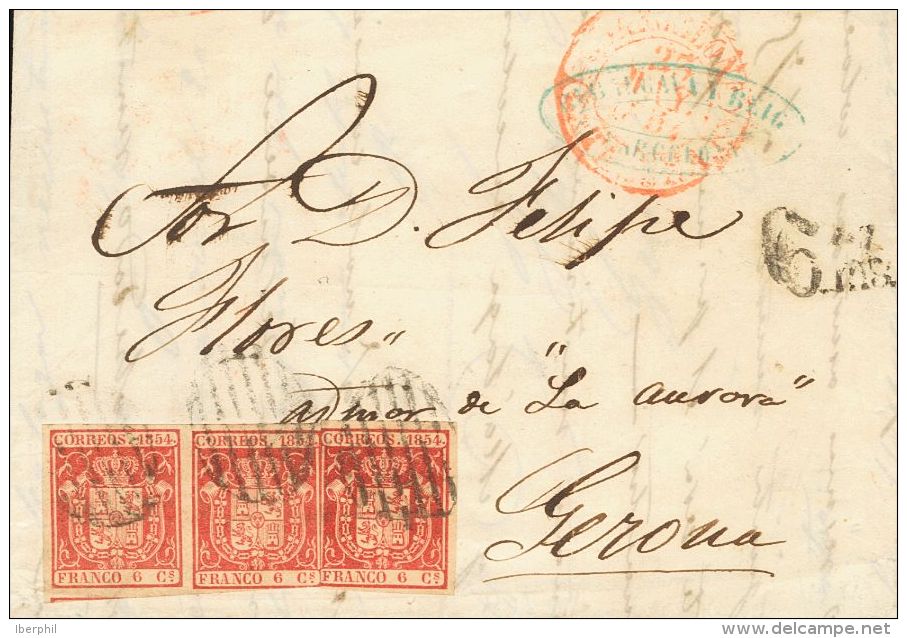 BARCELONA
Sor. D. Felipe
Flores
admor de "La Aurora"
Gerona
6
CORREOS. 1854. CORREOS. 185 CORREOS. 1854.
FRANCO 6 Cs FRANCO 6 Cs FRANCO 6 Cs
Iberphil
delcampe.net